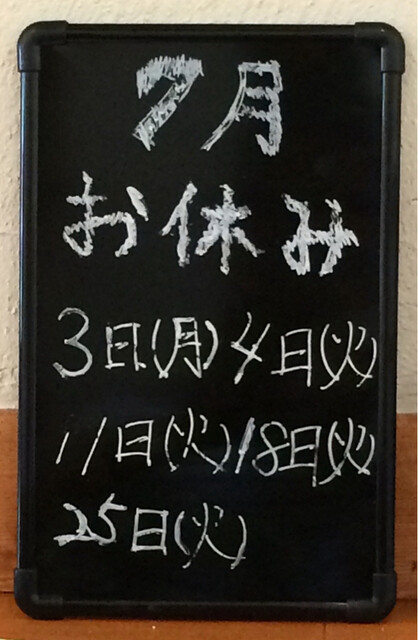 7月
お休み
3日(月)4日(火)
11日(火)18日(火)
25日(火)